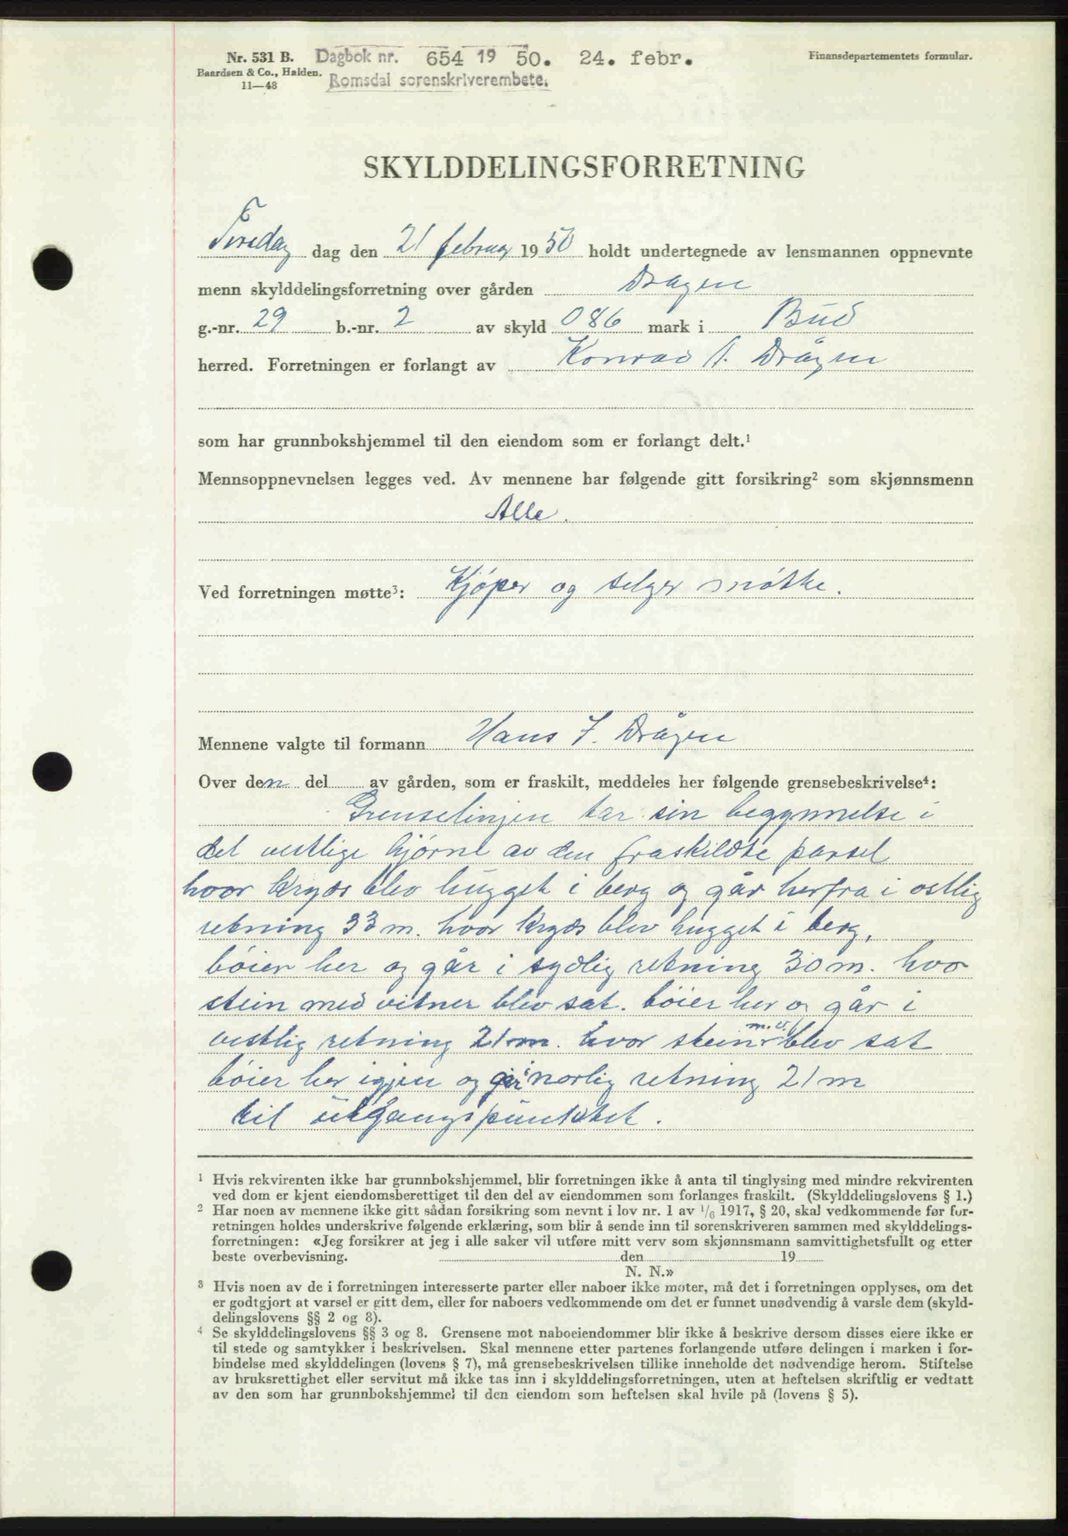 Nr. 531 B. Dagbok nr. 654 19 50. 24. febr. Finansdepartementets formular.
Baardsen & Co., Halden. Romsdal sorenskriverembete.
11—48
SKYLDDELINGSFORRETNING
Tirsdag dag den 21 februar 1950 holdt undertegnede av lensmannen oppnevnte
menn skylddelingsforretning over gården Drågen
g.-nr. 29 b.-nr. 2 av skyld 086 mark i Bud
herred. Forretningen er forlangt av Konrad A. Drågen
som har grunnbokshjemmel til den eiendom som er forlangt delt.¹
Mennsoppnevnelsen legges ved. Av mennene har følgende gitt forsikring² som skjønnsmenn
Alle.
Ved forretningen møtte³: Kjøper og selger møtte.
Mennene valgte til formann Hans J. Drågen
Over den del av gården, som er fraskilt, meddeles her følgende grensebeskrivelse⁴:
Grenselinjen tar sin begynnelse i
det vestlige hjørne av den fraskildte parsel
hvor kryds blev hugget i berg og går herfra i ostlig
retning 33 m. hvor kryds blev hugget i berg,
bøier her og går i sydlig retning 30 m. hvor
stein med vitner blev sat. bøier her og går i
vestlig retning 21 m. hvor stein m. v. blev sat
bøier her igjen og går i norlig retning 21 m
til utgangspunktet.
¹ Hvis rekvirenten ikke har grunnbokshjemmel, blir forretningen ikke å anta til tinglysing med mindre rekvirenten
ved dom er kjent eiendomsberettiget til den del av eiendommen som forlanges fraskilt. (Skylddelingslovens § 1.)
² Har noen av mennene ikke gitt sådan forsikring som nevnt i lov nr. 1 av 1/6 1917, § 20, skal vedkommende før for-
retningen holdes underskrive følgende erklæring, som blir å sende inn til sorenskriveren sammen med skylddelings-
forretningen: «Jeg forsikrer at jeg i alle saker vil utføre mitt verv som skjønnsmann samvittighetsfullt og etter
beste overbevisning. den 19
N. N.»
³ Hvis noen av de i forretningen interesserte parter eller naboer ikke møter, må det i forretningen opplyses, om det
er godtgjort at varsel er gitt dem, eller for naboers vedkommende om det er funnet unødvendig å varsle dem (skyld-
delingslovens §§ 2 og 8).
⁴ Se skylddelingslovens §§ 3 og 8. Grensene mot naboeiendommer blir ikke å beskrive dersom disses eiere ikke er
til stede og samtykker i beskrivelsen. Skal mennene etter partenes forlangende utføre delingen i marken i for-
bindelse med skylddelingen (lovens § 7), må grensebeskrivelsen tillike inneholde det nødvendige herom. Stiftelse
av bruksrettighet eller servitut må ikke tas inn i skylddelingsforretningen, uten at heftelsen skriftlig er vedtatt
av den som har grunnbokshjemmel til den eiendom som heftelsen skal hvile på (lovens § 5).